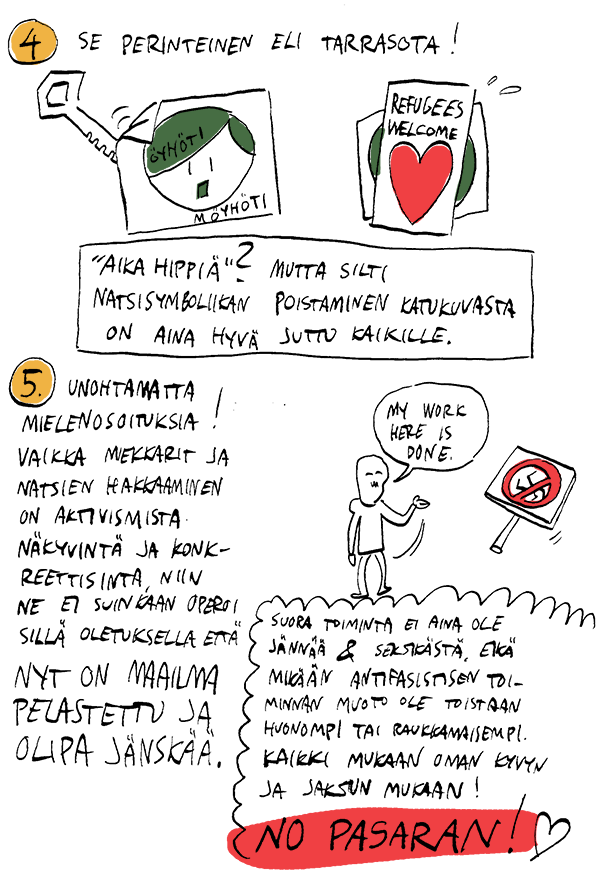 4 SE PERINTEINEN ELI TARRASOTA!
ÖYHÖTI
MÖYHÖTI
REFUGEES
WELCOME
"AIKA HIPPIÄ"? MUTTA SILTI
NATSISYMBOLIIKAN POISTAMINEN KATUKUVASTA
ON AINA HYVÄ JUTTU KAIKILLE.
5. UNOHTAMATTA
MIELENOSOITUKSIA!
VAIKKA MIEKKARIT JA
NATSIEN HAKKAAMINEN
ON AKTIVISMISTA
NÄKYVINTÄ JA KONK-
REETTISINTA, NIIN
NE EI SUINKAAN OPEROI
SILLÄ OLETUKSELLA ETTÄ
NYT ON MAAILMA
PELASTETTU JA
OLIPA JÄNSKÄÄ.
MY WORK
HERE IS
DONE.
SUORA TOIMINTA EI AINA OLE
JÄNNÄÄ & SEKSIKÄSTÄ, EIKÄ
MIKÄÄN ANTIFASISTISEN TOI-
MINNAN MUOTO OLE TOISTAAN
HUONOMPI TAI RAUKKAMAISEMPI.
KAIKKI MUKAAN OMAN KYVYN
JA JAKSUN MUKAAN!
NO PASARAN!